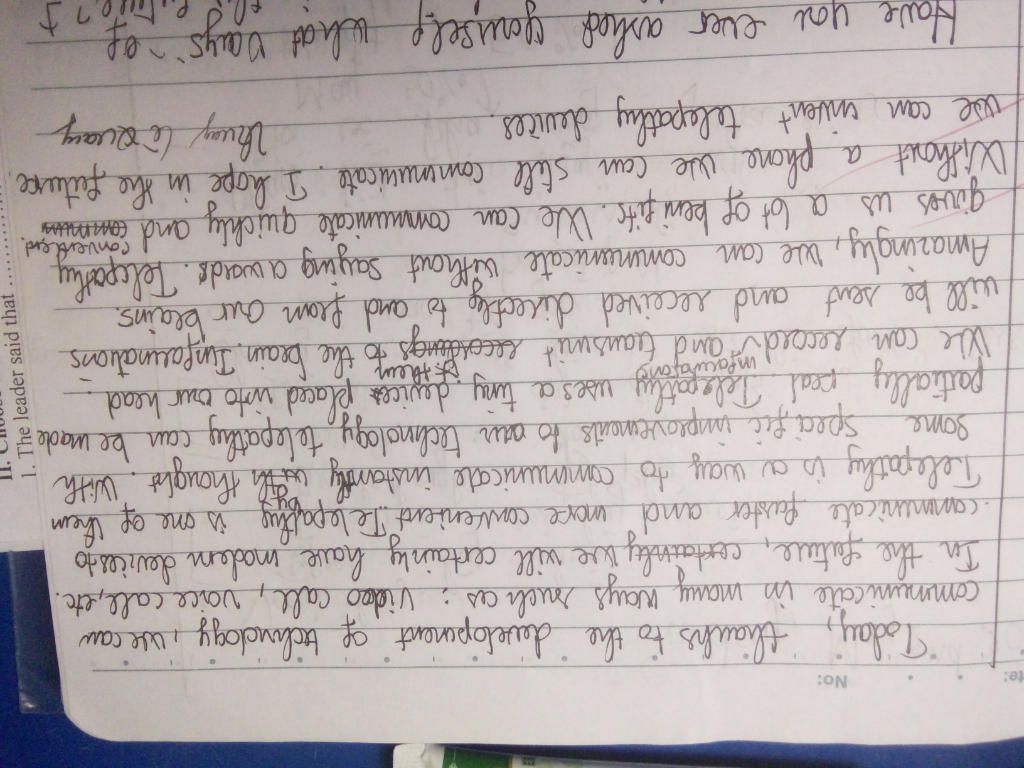 No:
Today, thanks to the development of technology, we can
communicate in many ways such as: video call, voice call, etc.
In the future, certainly we will certainly have modern devices to
communicate faster and more convenient. Telepathy is one of them
Telepathy is a way to communicate instantly with by thought. With
some specific improvements to our technology telepathy can be made
partially real. Telepathy uses a tiny devices placed into our head.
informations of them
We can record and transmit recordings to the brain. Informations
will be sent and received directly to and from our brains.
Amazingly, we can communicate without saying a words. Telepathy
gives us a lot of benifits. We can communicate quickly and commun convenient.
Without a phone we can still communicate. I hope in the future
we can invent telepathy devices.
Have you ever asked yourself what ways of
1. The leader said that